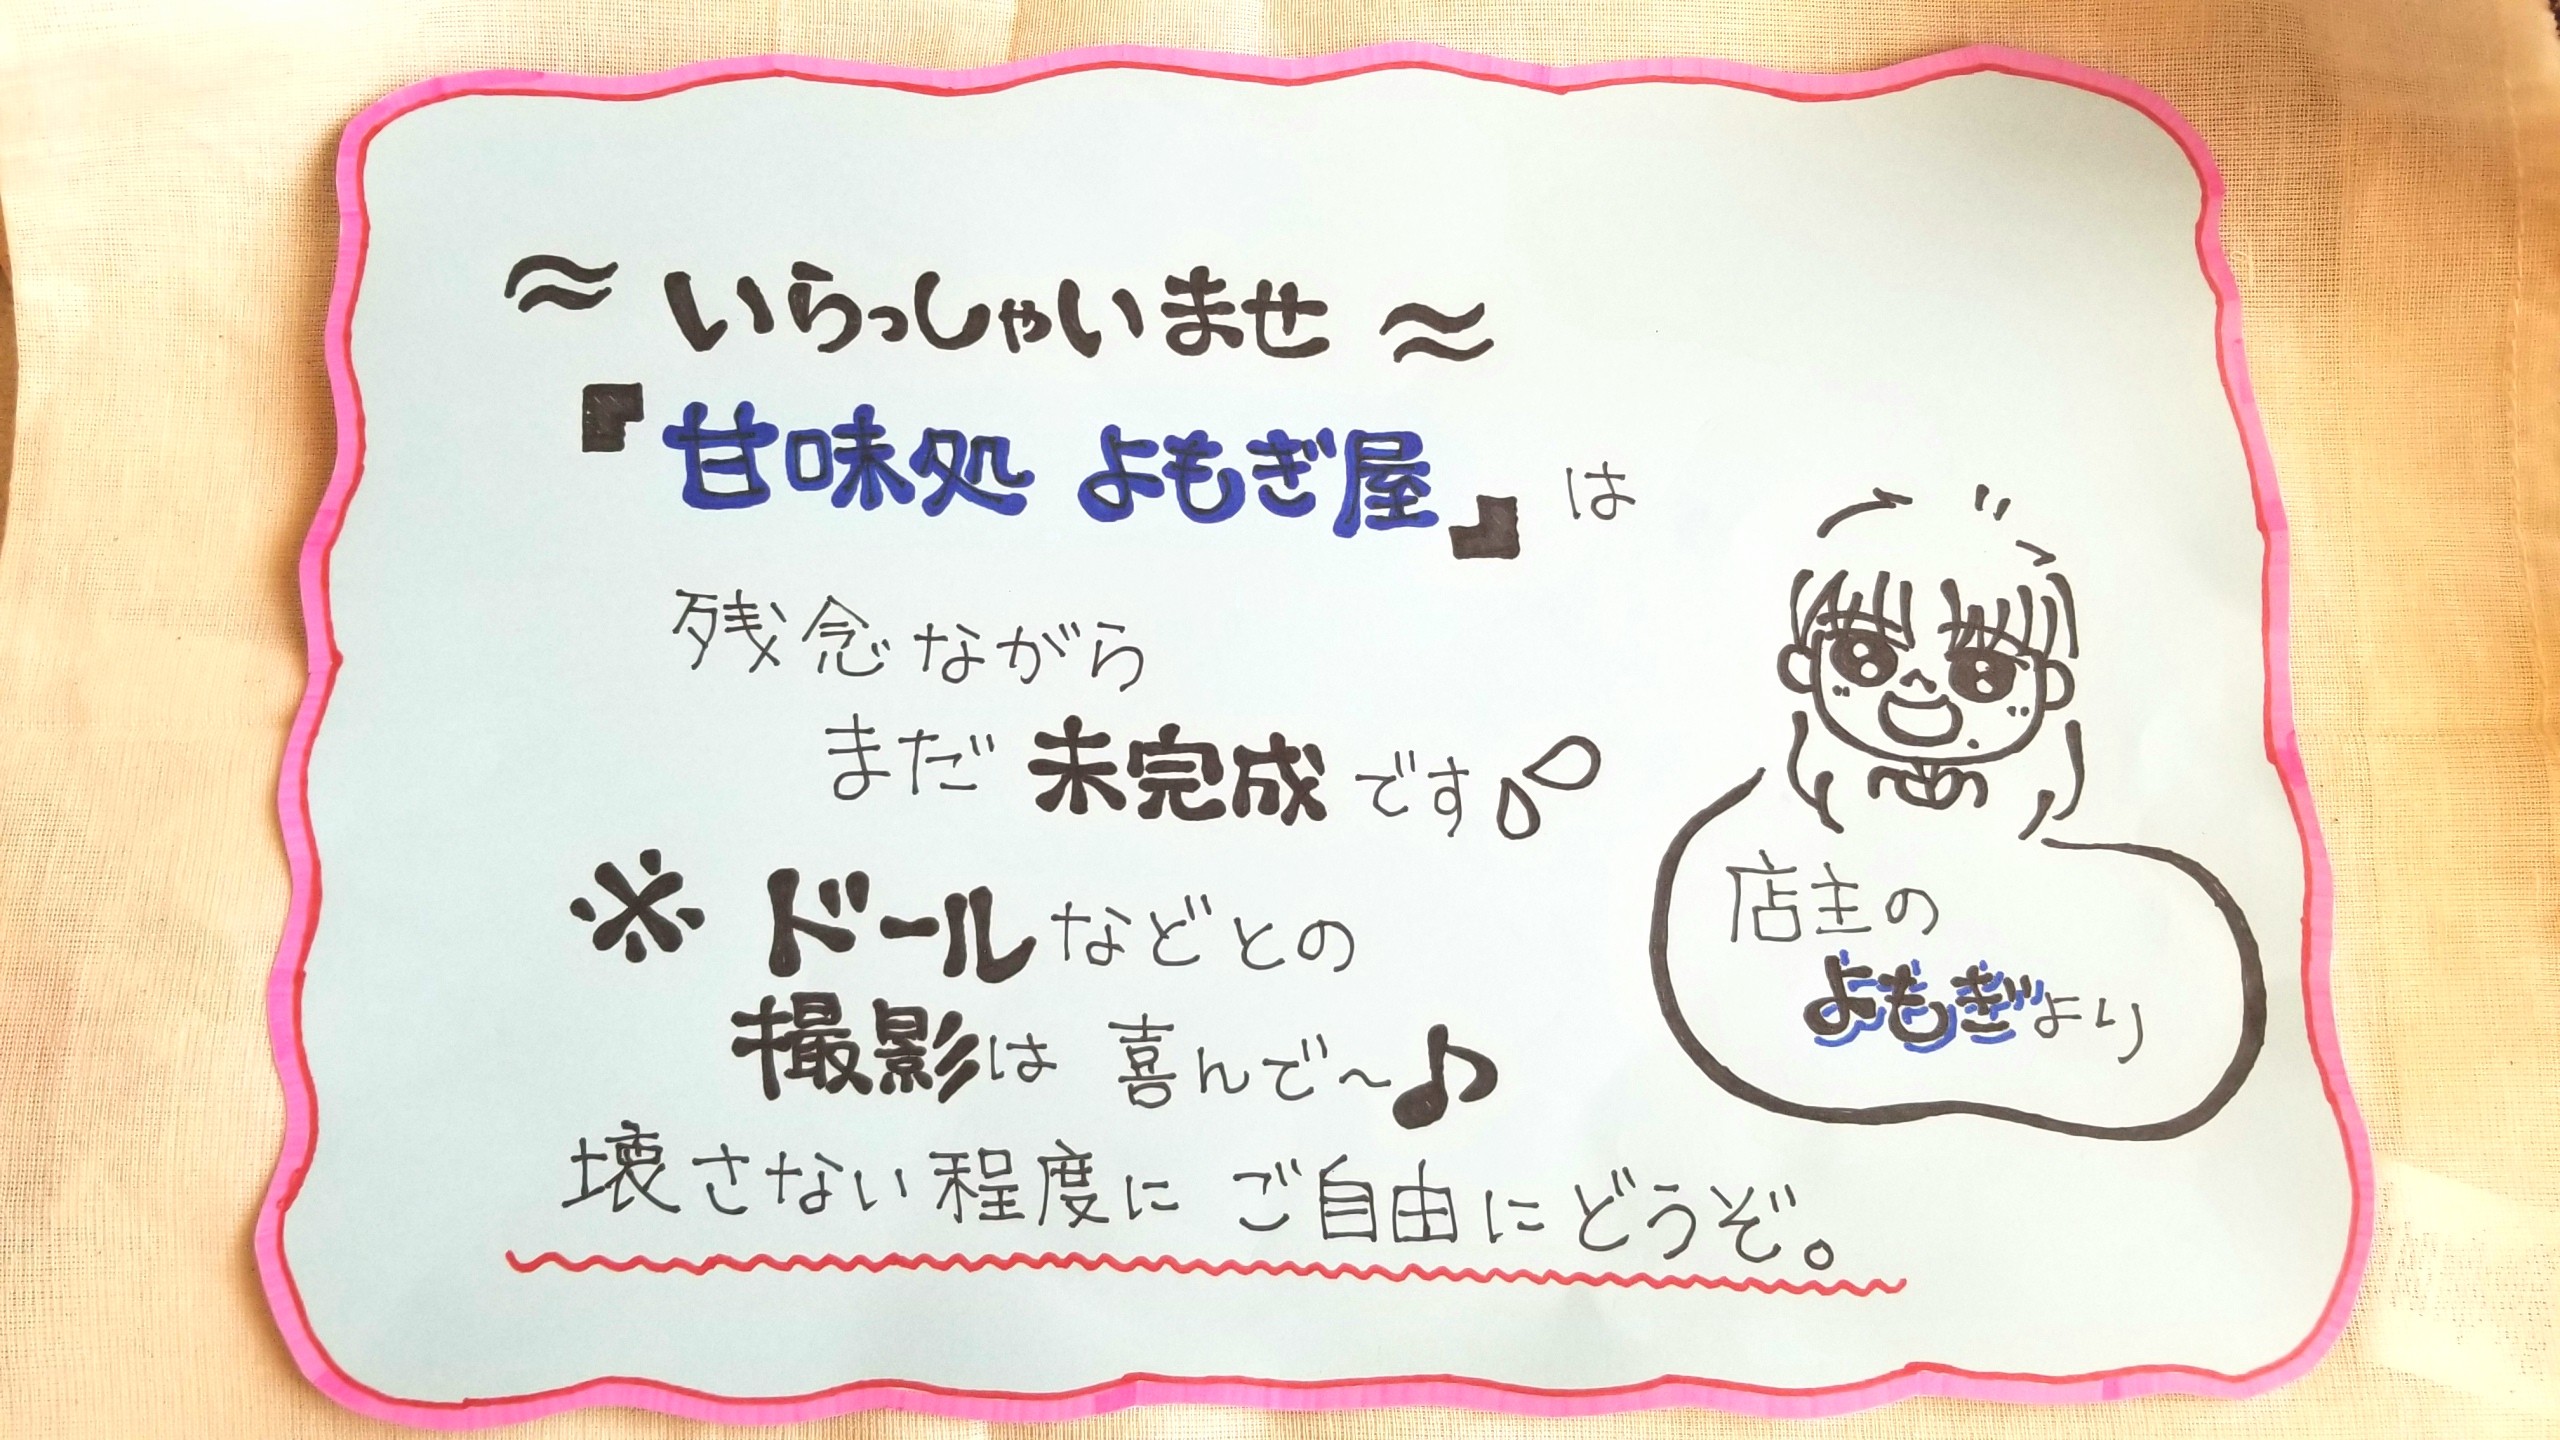 ≈ いらっしゃいませ ≈
『甘味処 よもぎ屋』は
残念ながら
まだ 未完成です
※ ドールなどとの
撮影は 喜んで〜♪
壊さない程度に ご自由にどうぞ。
店主の
よもぎより